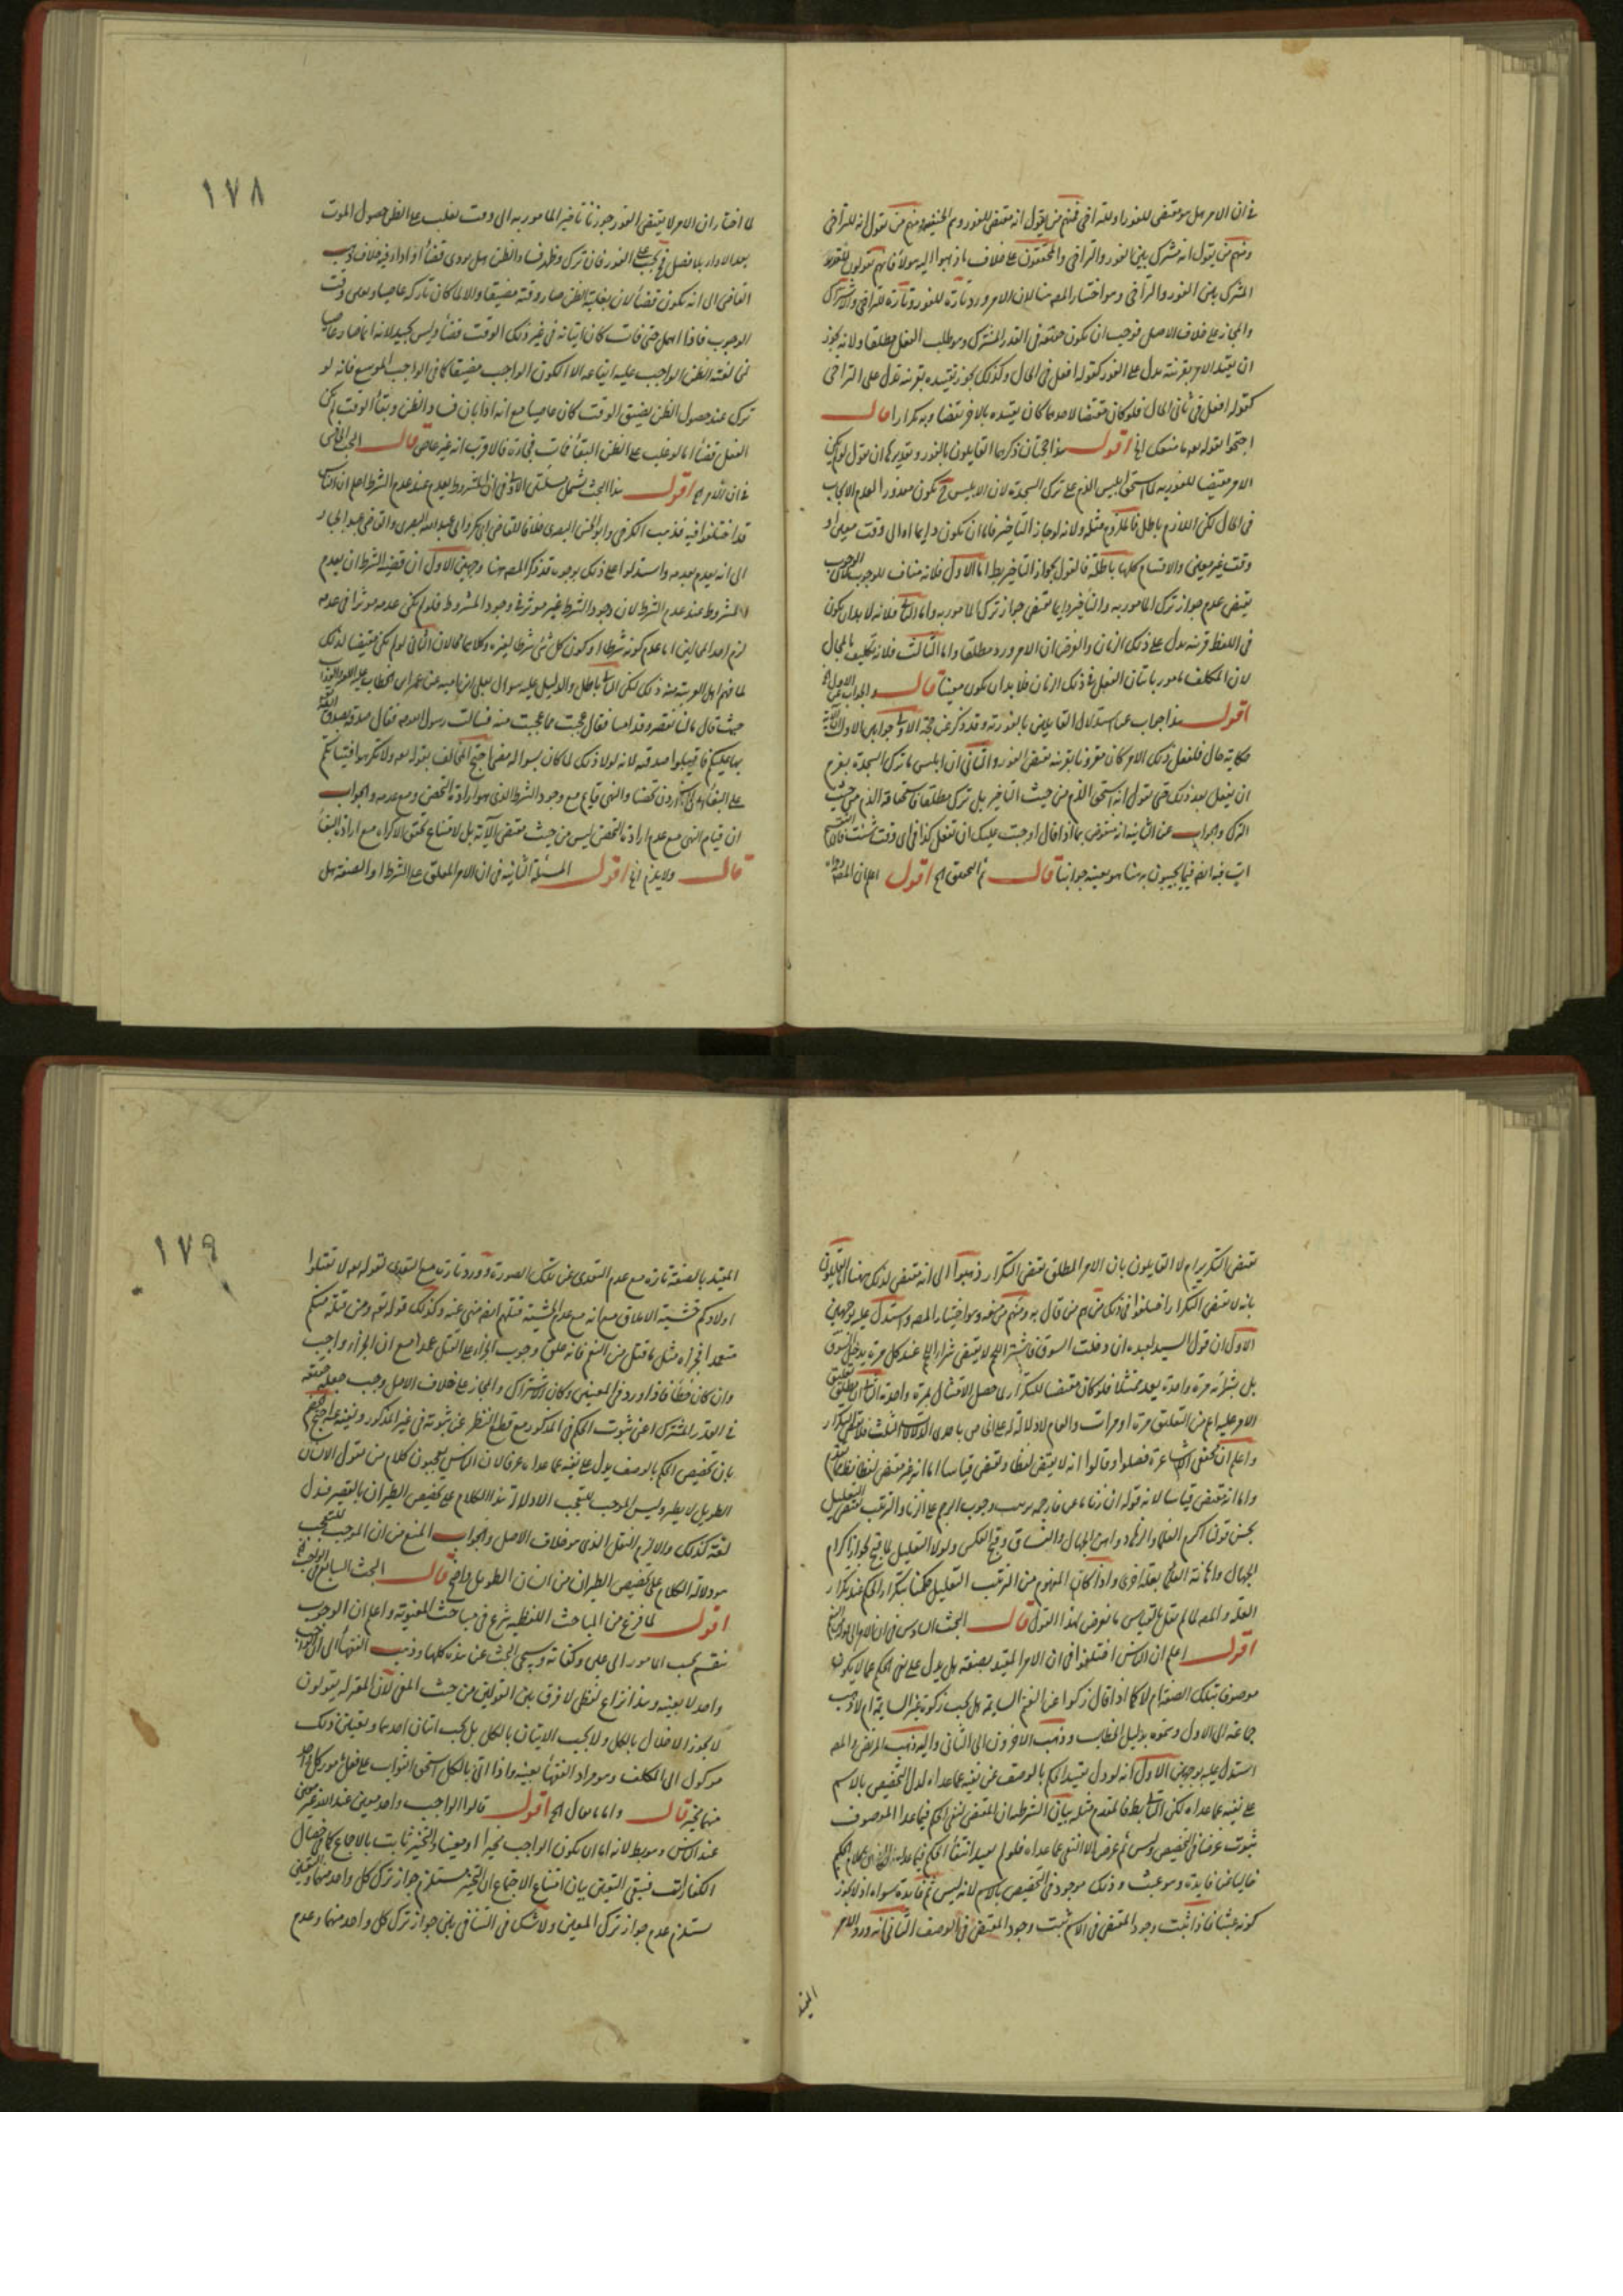 في ان الامر هل هو مقتضى للفور او للتراخي فمنهم من يقول انه مقتضى للفور وهم الحنفيه ومنهم من يقول انه للتراخي
ومنهم من يقول انه مشترك بين الفور والتراخي والمحققون على خلاف ما ذهبوا اليه هولاء فانهم يقولون للقدر
المشترك بين الفور والتراخي وهو اختيار المصـ هنا لان الامر ورد تارة للفور وتارة للتراخي والاشتراك
والمجاز على خلاف الاصل فوجب ان يكون حقيقة في القدر المشترك وهو طلب الفعل مطلقا ولانه يجوز
ان يقيد الامر بقرينة تدل على الفور كقوله افعل في الحال وكذلك يجوز تقييده بقرينة تدل على التراخي
كقوله افعل في ثاني الحال فلو كان مقتضيا لاحدهما كان تقييده بالاخر نقضا وبه تكرارا قال
احتجوا بقوله تعه ما منعك الخ اقول هذا حجتان ذكرهما القايلون بالفور وتقديرها ان نقول لو لم يكن
الامر مقتضيا للفور لما استحق ابليس الذم على ترك السجدة لان لابليس ح يكون معذورا لعدم الايجاب
في الحال لكن اللازم باطل فالملزوم مثله ولانه لو جاز التاخير فاما ان يكون دايما او الى وقت معين او
وقت غير معين والاقسام كلها باطلة فالقول بجواز التاخير بط اما الاول فلانه مناف للوجوب لان الوجوب
يقتضي عدم جواز ترك المامور به والتاخير دايما يقتضي جواز ترك المامور به واما الثا فلانه لا بد ان يكون
في اللفظ قرينة تدل على ذلك الزمان والفرض ان الامر ورد مطلقا واما الثالث فلانه تكليف بالمحال
لان المكلف مامور باتيان الفعل في ذلك الزمان فلا بد ان يكون معينا قال والجواب عن الاول الخ
اقول هذا جواب عن استدلال القايلين بالفور وقد ذكر عن حجة الاولى جوابين الاول انه
حكاية حال فلعل ذلك الامر كان مقرونا بقرينة تقتضي الفور والثاني ان ابليس ما ترك السجدة بعزم
ان يفعل بعد ذلك حتى نقول انه استحق الذم من حيث التاخير بل ترك مطلقا فاستحقاقه الذم من حيث
الترك والجواب عن الثانية انه منقوض بما اذا قال اوجبت عليك ان تفعل كذا في اي وقت شئت فالاقسام
آت فيه ايضا فما يجيبون به هنا هو بعينه جوابنا قال ثم التحقيق الخ اقول اعلم ان المصـ
لما اختار ان الامر لا يقتضي الفور جوزنا تاخير المامور به الى وقت يغلب على الظن حصول الموت
بعد الاداء بلا فصل فح يجب على الفور فان ترك وظهر فساد الظن هل يودي قضاء او اداء فيه خلاف ذهب
القاضي الى انه يكون قضاء لان بغلبة الظن صار وقته مضيقا والا لما كان تاركه عاصيا وبعلى وقت
الوجوب فاذا اهمل حتى فات كان اتيانه في غير ذلك الوقت قضاء وليس بجيد لانه انما صار عاصيا
لمخالفته الظن الواجب عليه اتباعه لا لكون الواجب مضيقا كما في الواجب الموسع فانه لو
ترك عند حصول الظن بضيق الوقت كان عاصيا مع انه اذا بان فساد الظن وبقاء الوقت لم يكن
الفعل قضاء اما لو غلب على الظن البقاء فمات فجاة فالاقرب انه غير عاص قال البحث الخامس
في ان الامر الخ اقول هذا البحث يشمل مسئلتين الاولى في ان المشروط يعدم عند عدم الشرط اعلم ان الناس
قد اختلفوا فيه فذهب الكرخي وابو الحسن البصري خلافا للقاضي ابي بكر وابي عبد الله البصري والقاضي عبد الجبار
الى انه يعدم بعدمه واستدلوا على ذلك بوجوه قد ذكر المصـ هنا وجهين الاول ان قضية الشرط ان يعدم
المشروط عند عدم الشرط لان وجود الشرط غير موثر في وجود المشروط فلو لم يكن عدمه موثرا في عدمه
لزم احد المحالين اما عدم كونه شرطا او كون كل شئ شرطا لغيره وكلاهما محالان الثاني لو لم يكن مقتضيا لذلك
لما فهم اهل العربية منه ذلك لكن الثا باطل والدليل عليه سوال يعلى ابن امية عن عمر ابن الخطاب
حيث قال ما لنا نقصر وقد امنا فقال عجبت مما عجبت منه فسالت رسول الله صه فقال صدقة تصدق الله
بها عليكم فاقبلوا صدقته لانه لولا ذلك لما كان لسواله معنى احتج المخالف بقوله تعه ولا تكرهوا فتياتكم
على البغاء ان اردن تحصنا والنهي قايم مع وجود الشرط الذي هو ارادة التحصن ومع عدمه والجواب
ان قيام النهي مع عدم ارادة التحصن ليس من حيث مقتضى الآية بل لامتناع تحقق الاكراه مع ارادة البغاء
قال ولا يلزم الخ اقول المسئلة الثانية في ان الامر المعلق على الشرط او الصفة هل
١٧٨
يقتضي التكرير ام لا القايلون بان الامر المطلق يقتضي التكرار ذهبوا الى انه يقتضي لذلك هنا اما القايلون
بانه لا يقتضي التكرار اختلفوا في ذلك فمنهم من قال به ومنهم من منعه وهو اختيار المصـ واستدل عليه بوجهين
الاول ان قول السيد لعبده ان دخلت السوق فاشتر اللحم لا يقتضي شراء اللحم عند كل مرة يدخل السوق
بل بشرائه مرة واحدة يعد ممتثلا فلو كان مقتضيا للتكرار لما حصل الامتثال بمرة واحدة الثا ان مطلق تعليق
الامر عليه اعم من التعليق مرة او مرات والعام لا دلالة له على الخاص باحدى الدلالات الثلث فلا يقتضي التكرار
واعلم ان محققي الاشاعرة فصلوا وقالوا انه لا يقتضي لفظا ويقتضي قياسا اما انه غير مقتضى لفظا فظاهر
واما انه يقتضي قياسا لانه قوله ان زنا ماعز فارجمه يرتب وجوب الرجم على الزنا والترتب يقتضي التعليل
بحسن قولنا اكرم العلماء والزهاد واهن الجهال والفساق وقبح العكس ولولا التعليل لما قبح لجواز اكرام
الجهال واهانة العلماء بعلة اخرى واذا كان المفهوم من الترتب التعليل حكمنا بتكرار الحكم عند تكرار
العلة والمصـ لما لم يقل بالقياس ما تعرض لهذا القول قال البحث السادس في ان الامر
اقول اعلم ان الناس اختلفوا في ان الامر المقيد بصفة هل يدل على نفي الحكم عما لا يكون
موصوفا بتلك الصفة ام لا كما اذا قال زكوا عن الغنم السايمة هل يجب زكوة غير السايمة ام لا ذهب
جماعة الى الاول وسموه بدليل الخطاب وذهب الاخرون الى الثاني واليه ذهب المرتضى والمصـ
استدل عليه بوجهين الاول انه لو دل تقييد الحكم بالوصف على نفيه عما عداه لدل التخصيص بالاسم
على نفيه عما عداه لكن الثا بط فالمقدم مثله بيان الشرطية ان المقتضي لنفي الحكم فيما عدا الموصوف
ثبوت غرض في التخصيص وليس ثم غرض الا النفي عما عداه فلو لم يفيد انتفاء الحكم فيما عداه
خاليا عن فايدة وهو عبث وذلك موجود في التخصيص بالاسم لانه ليس ثم فايدة سواه اذ لا يجوز
كونه عبثا فاذا ثبت وجود المقتضي في الاسم ثبت وجود المقتضي في الوصف الثاني انه ورد الامر
المقيد
المقيد بالصفة تارة مع عدم التعدي عن تلك الصورة وورد تارة مع التعدي لقوله تعه لا تقتلوا
اولادكم خشية الاملاق مع انه مع عدم الخشية قتلهم ايضا منهي عنه وكذلك قوله تعه ومن قتله منكم
متعمدا فجزاء مثل ما قتل من النعم فانه علق وجوب الجزاء على القتل عمدا مع ان الجزاء واجب
وان كان خطأ فاذا ورد في المعنيين وكان الاشتراك والمجاز على خلاف الاصل وجب جعله حقيقة
في القدر المشترك اعني ثبوت الحكم في المذكور مع قطع النظر عن ثبوته في غير المذكور ونفيه عنه احتج الخصم
بان تخصيص الحكم بالوصف يدل على نفيه عما عداه عرفا لان الناس يتعجبون كلام من يقول الانسان
الطويل لا يطير وليس الموجب للتعجب الا دلالة هذا الكلام على تخصيص الطيران بالقصير فيدل
لغة كذلك والا لزم النقل الذي هو خلاف الاصل والجواب المنع من ان الموجب للتعجب
هو دلالة الكلام على تخصيص الطيران من انسان الطويل واضح قال البحث السابع في الواجب الخ
اقول لما فرغ من المباحث اللفظية شرع في مباحث المعنوية واعلم ان الوجوب
ينقسم بحسب المامور الى عيني وكفاية وسيجئ البحث عن هذه كلها وذهب الفقهاء الى ان الواجب
واحد لا بعينه وهذا نزاع لفظي لا فرق بين القولين من حيث المعنى لان المعتزله يقولون
لا يجوز الاخلال بالكل ولا يجب الاتيان بالكل بل يجب اتيان احدهما وتعيين ذلك
موكول الى المكلف وهو مراد الفقهاء بعينه واذا اتى بالكل استحق الثواب على فعل امور كل واحد
منها مخير قال واما ما يقال الخ اقول قالوا الواجب واحد معين عند الله غير معين
عند الناس وهو بط لانه اما ان يكون الواجب مخيرا او معينا والتخيير ثابت بالاجماع كما في خصال
الكفارات فينتفي التعيين بيان امتناع الاجتماع ان التخيير مستلزم جواز ترك كل واحد منهما والتعيين
يستلزم عدم جواز ترك المعين ولا شك في التنافي بين جواز ترك كل واحد منهما وعدم
١٧٩